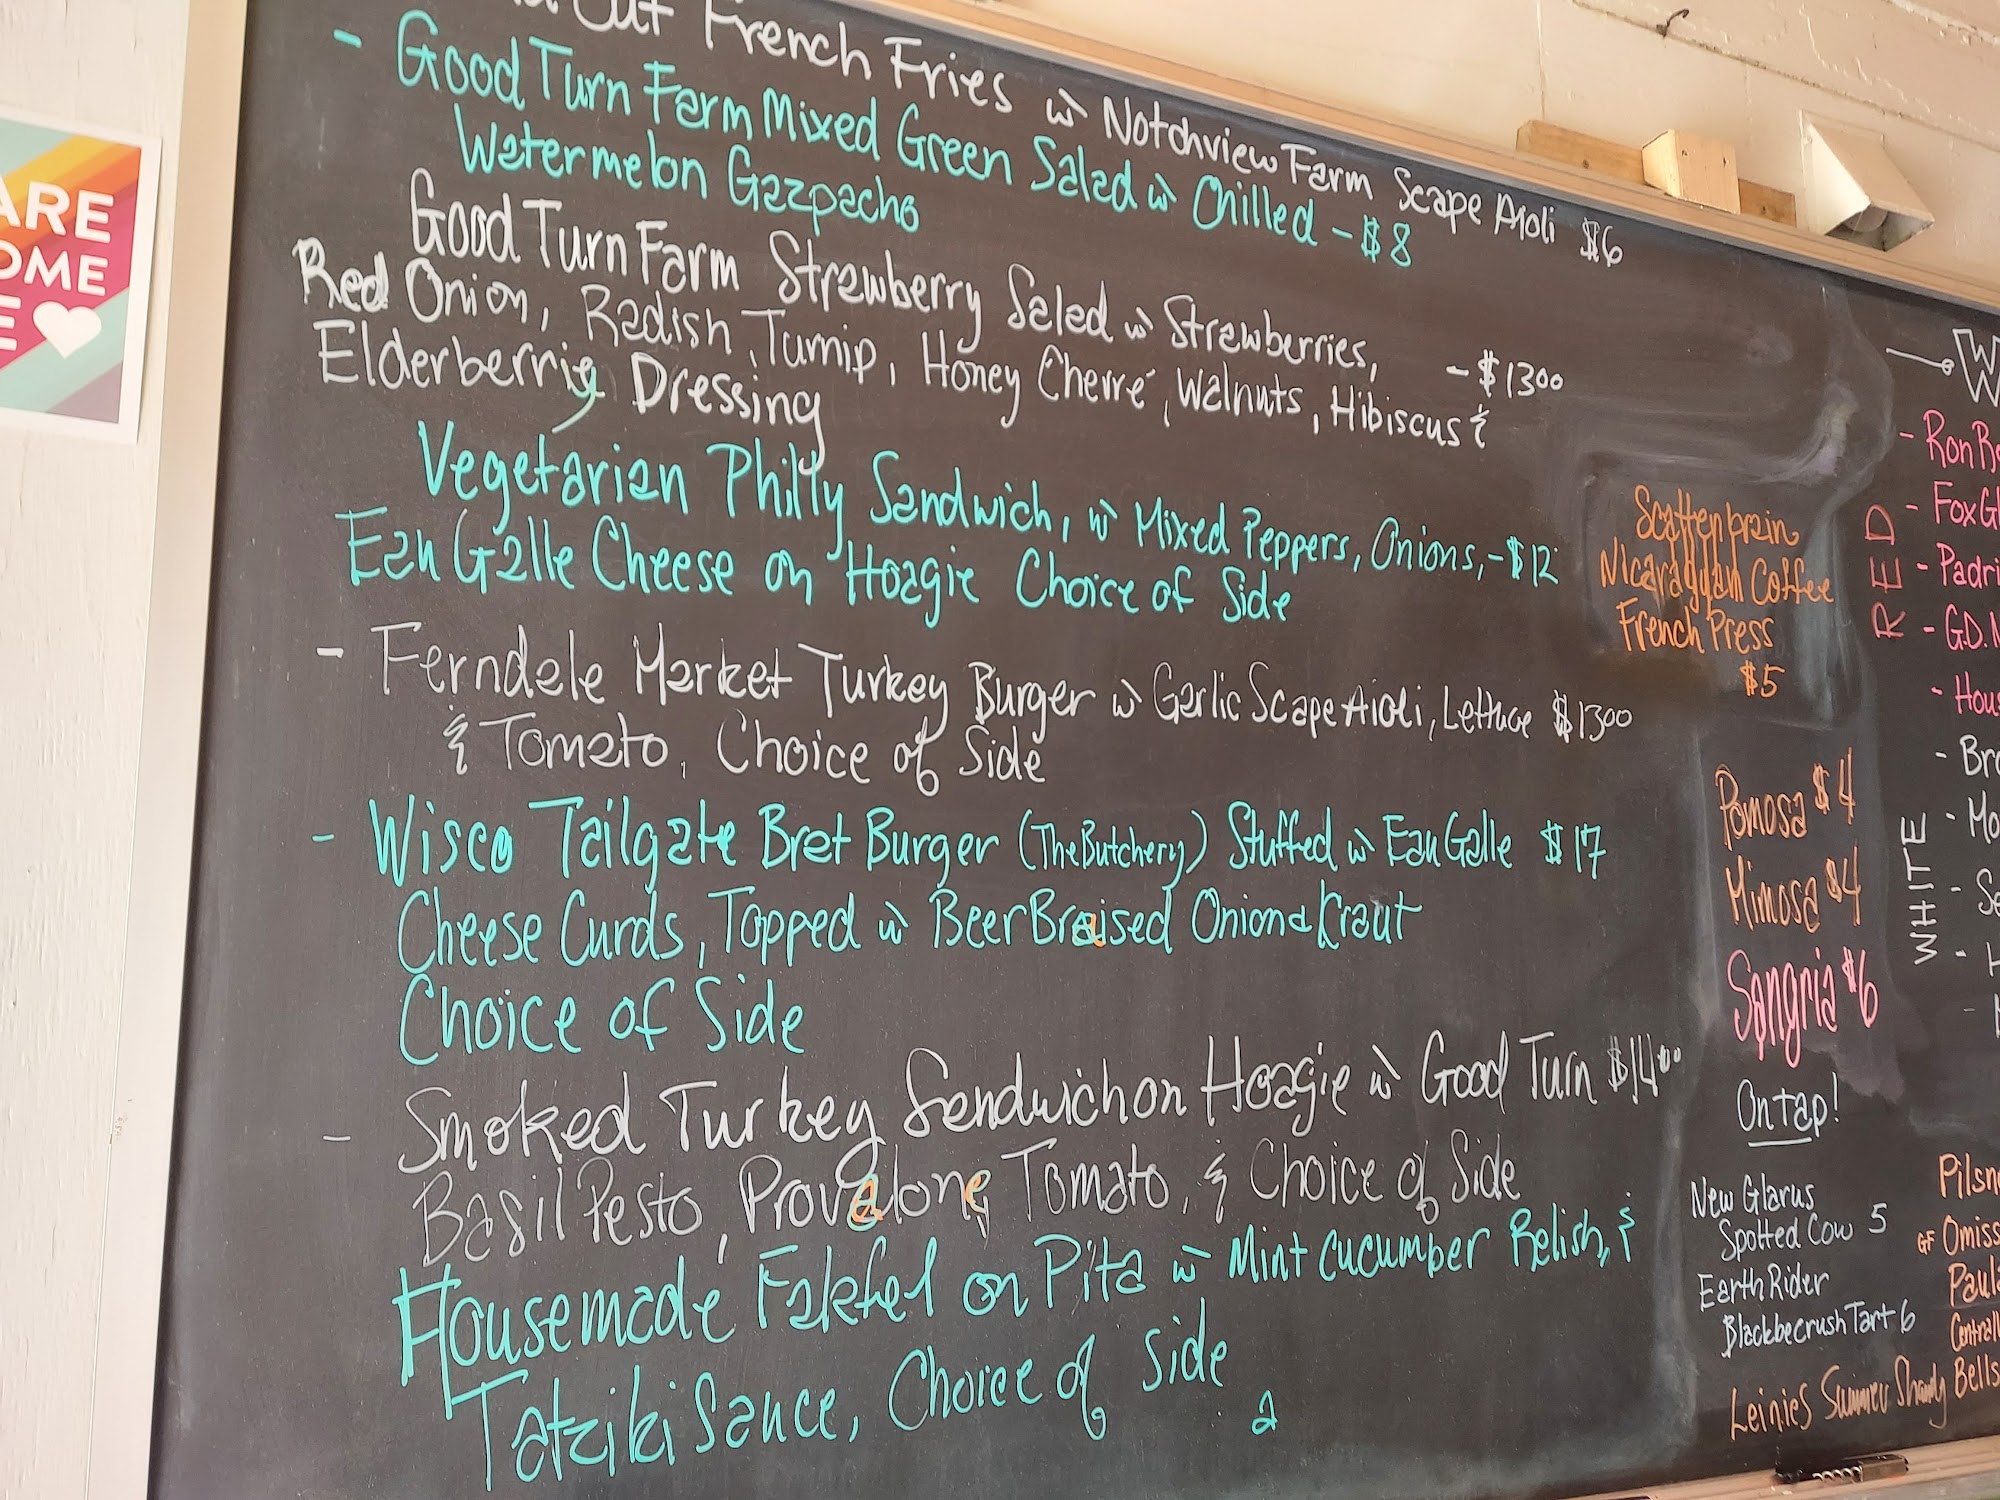 Cut French Fries w Notchview Farm Scape Aioli $6
- Good Turn Farm Mixed Green Salad w Chilled - $8
Watermelon Gazpacho
Good Turn Farm Strawberry Salad w Strawberries, - $13⁰⁰
Red Onion, Radish, Turnip, Honey Chevré, Walnuts, Hibiscus &
Elderberry Dressing
Vegetarian Philly Sandwich, w Mixed Peppers, Onions, - $12
Eau Galle Cheese on Hoagie Choice of Side
- Ferndale Market Turkey Burger w Garlic Scape Aioli, Lettuce $13⁰⁰
& Tomato, Choice of Side
- Wisco Tailgate Brat Burger (The Butchery) Stuffed w Eau Galle $17
Cheese Curds, Topped w Beer Braised Onion & Kraut
Choice of Side
- Smoked Turkey Sandwich on Hoagie w Good Turn $14⁰⁰
Basil Pesto, Provalone, Tomato, & Choice of Side
Housemade Falafel on Pita w Mint Cucumber Relish, &
Tatziki Sauce, Choice of Side
a
Scatterbrain
Nicaraguan Coffee
French Press
$5
Pomosa $4
Mimosa $4
Sangria $6
On tap!
New Glarus
Spotted Cow 5
Earth Rider
Blackbecrush Tart 6
Leinies Summer Shandy
Pilsn
GF Omiss
Paula
Central
Bells
W
RED
- Ron R
- Fox G
- Padri
- G.D. M
- Hous
WHITE
- Bro
- Mo
- Se
- H
ARE
OME
E